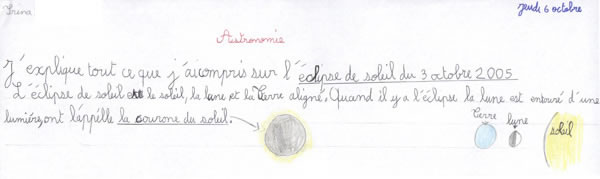 Irina
Jeudi 6 octobre
Astronomie
J'explique tout ce que j'aicompris sur l'éclipse de soleil du 3 octobre 2005
L'éclipse de soleil et le soleil, la lune et la Terre aligné. Quand il y a l'éclipse la lune est entouré d'une
lumiére, ont l'appélle la courone du soleil.
Terre lune soleil